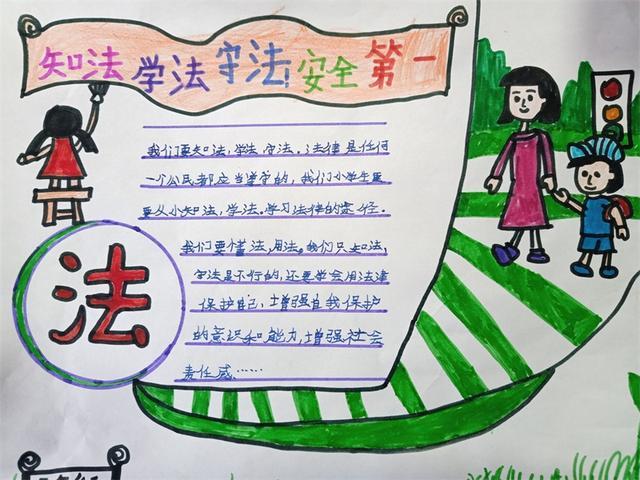 知法 学法 守法 安全 第一
我们要知法,学法,守法。法律是任何
一个公民都应当掌守的,我们小学生更
要从小知法,学法。学习法律的途径.
我们要懂法,用法。我们只知法,
守法是不行的,还要学会用法律
保护自己,增强自我保护
的意识和能力,增强社会
责任感……
法